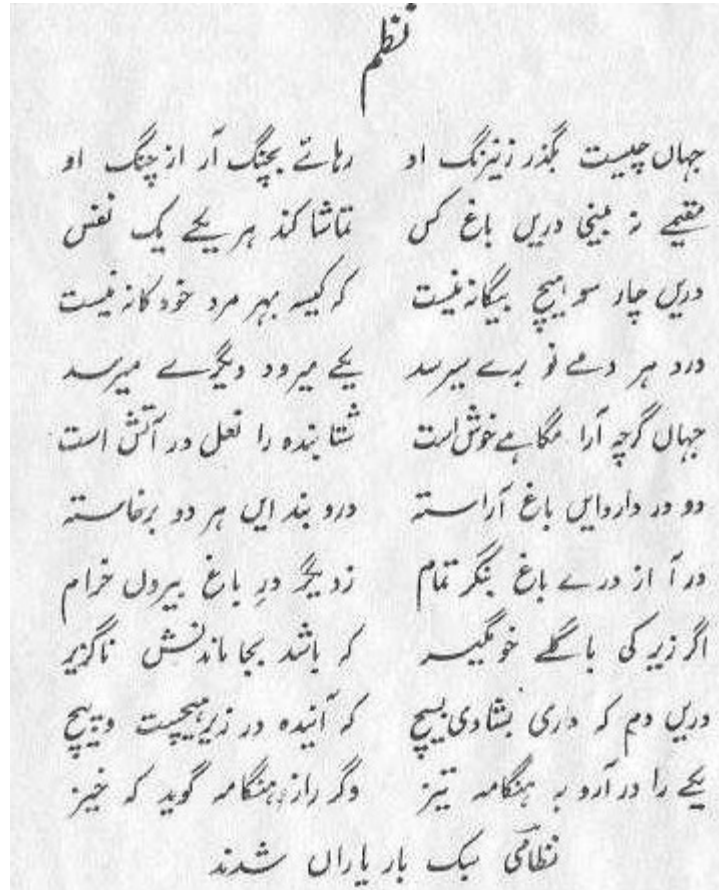 نظم
جہاں چیست بگذر ز نیرنگ او رہائے بچنگ آر از چنگ او
مقیمے نہ بینی دریں باغ کس تماشا کند ہر یکے یک نفس
دریں چار سو ہیچ بیگانہ نیست کہ کیسہ بہر مرد خود کانہ نیست
درو ہر دمے نو برے میرسد یکے میرود دیگرے میرسد
جہاں گرچہ آرا مگاہے خوش است شتا بندہ را نعل در آتش است
دو در دارد ایں باغ آراستہ درو بند ایں ہر دو برخاستہ
در آ از درے باغ بنگر تمام ز دیگر در باغ بیروں خرام
اگر زیر کی با گلے خو مگیر کہ باشد بجا ماندنش ناگزیر
دریں دم کہ داری بشادی بسیچ کہ آئندہ در زیر ہیچست و پیچ
یکے را در آرد بہ ہنگامہ تیز دگر را ز ہنگامہ گوید کہ خیز
نظامی سبک بار یاراں شدند